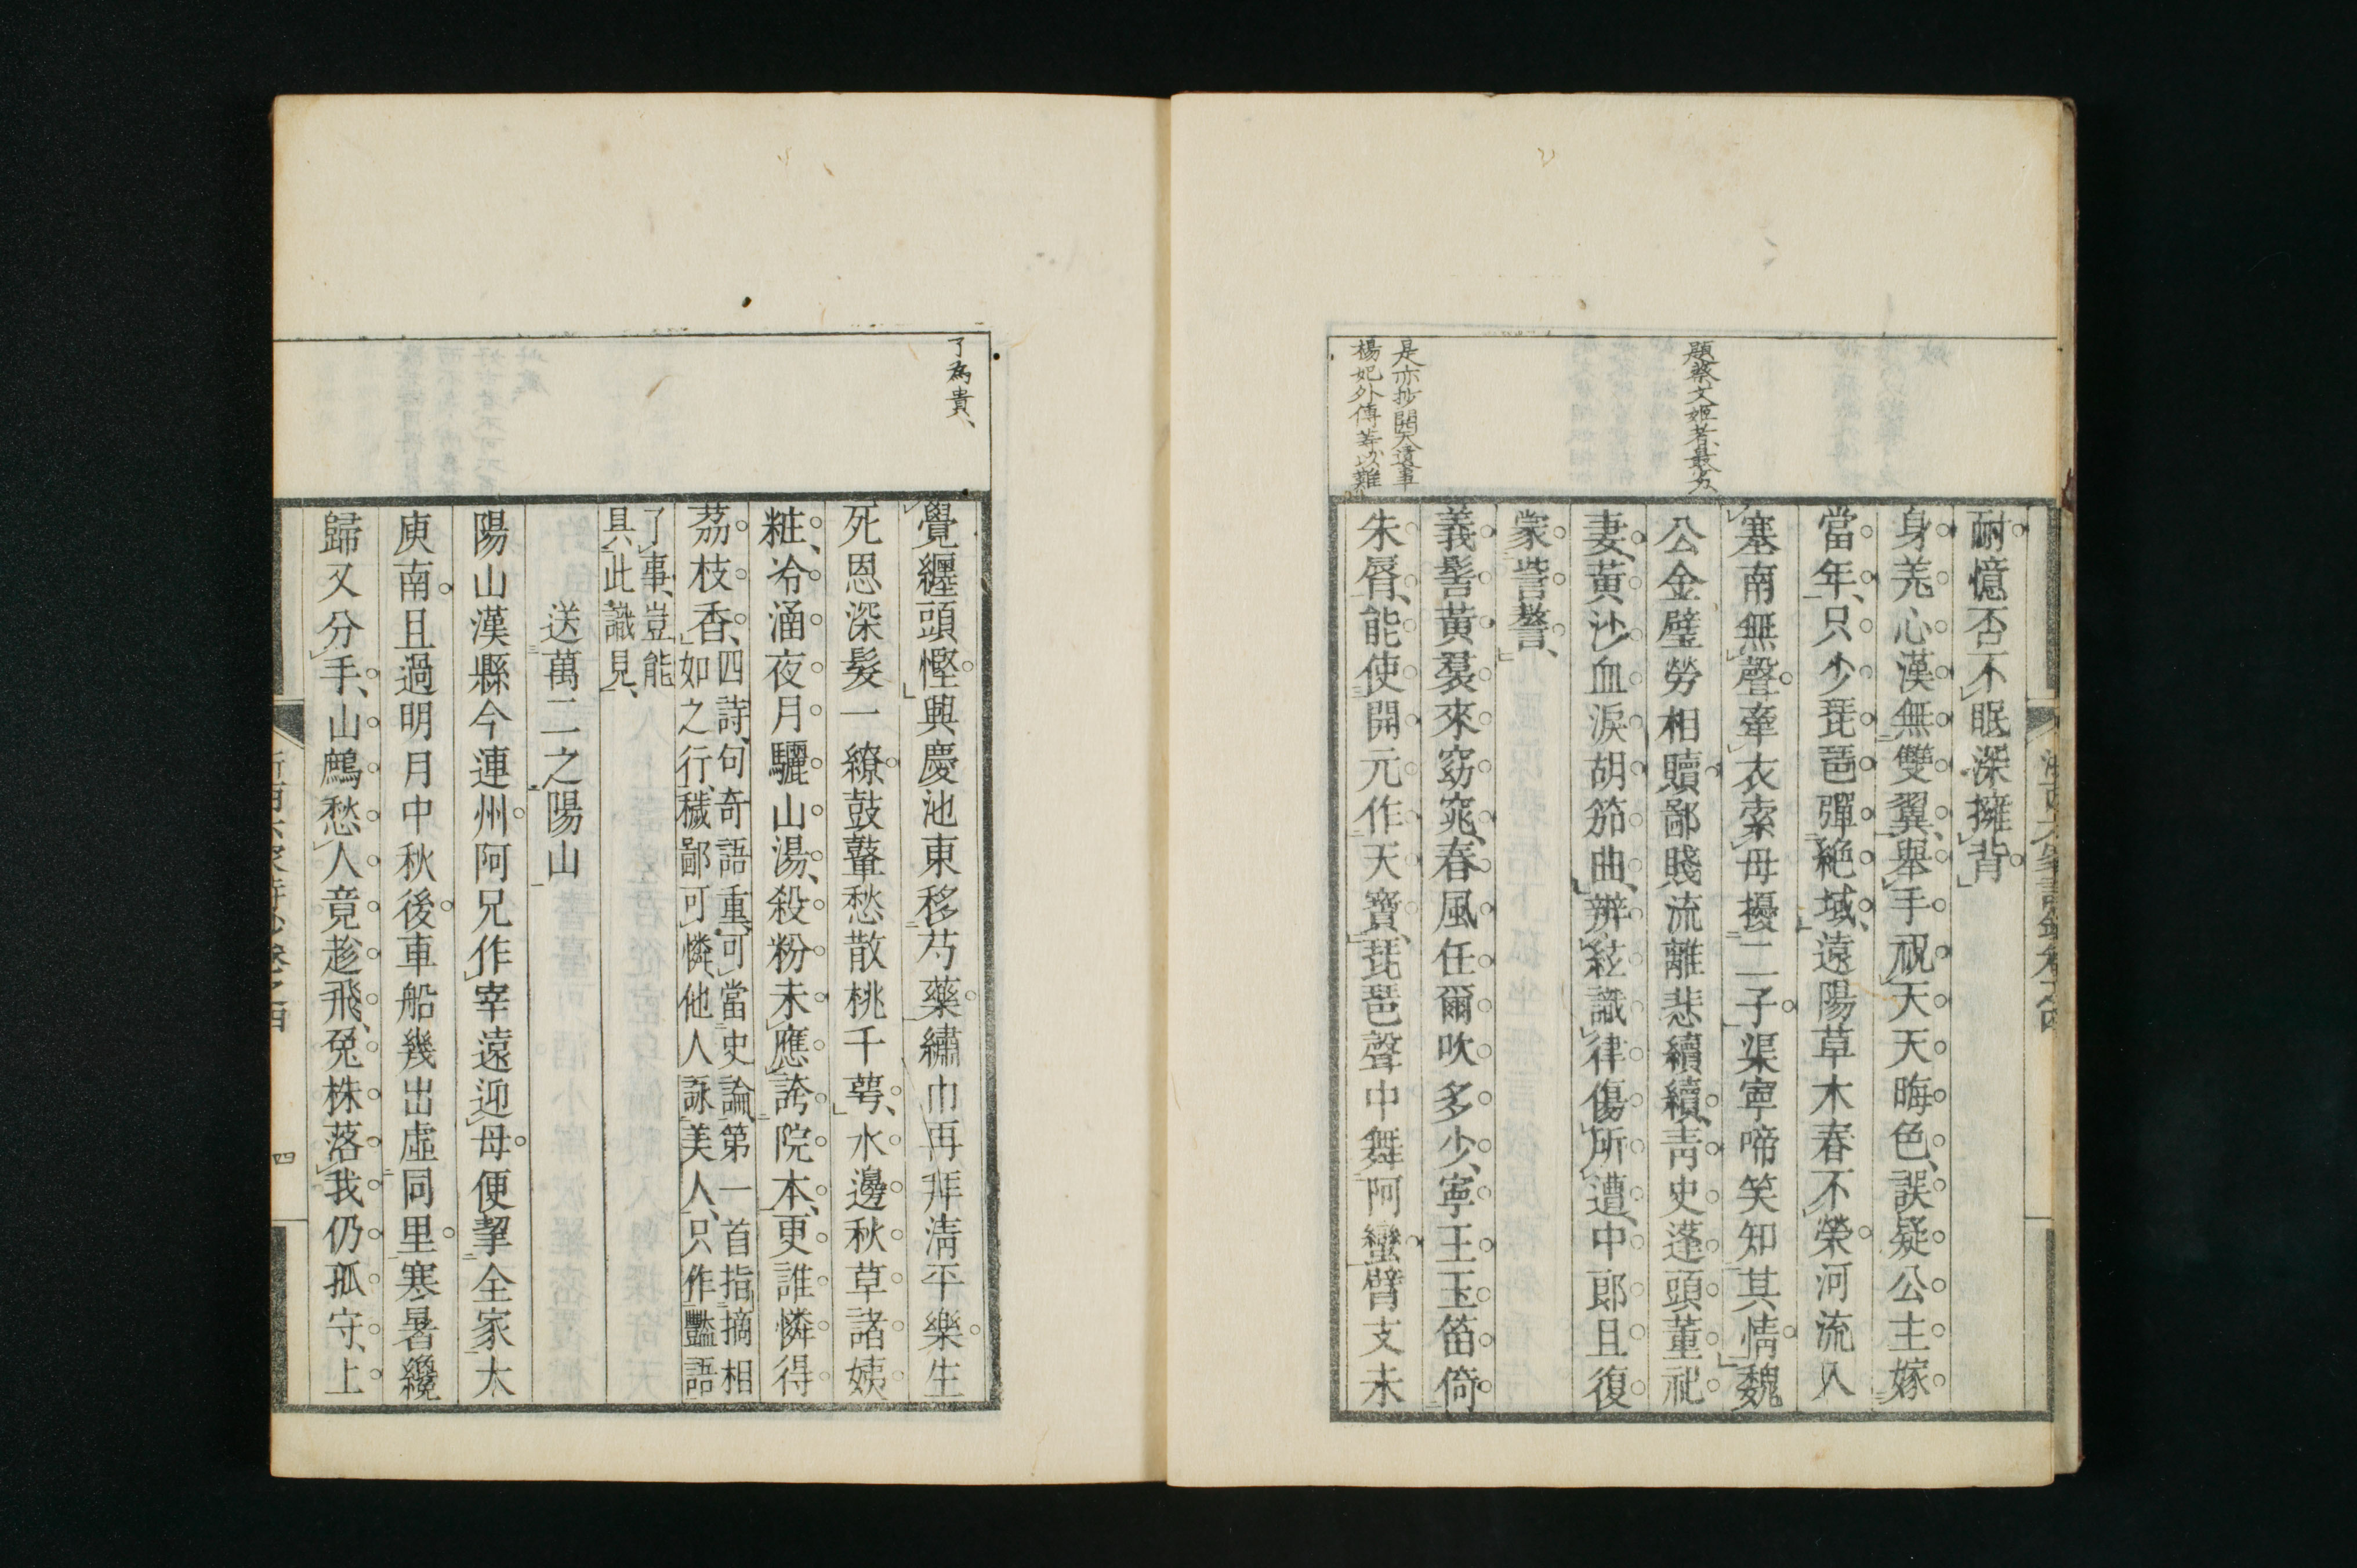 題蔡文姬者最多
是亦抄開天遺事
楊妃外傳等以難
耐憶否不眠深擁背
身羌心漢無雙翼、舉手祝天天晦色、誤疑公主嫁
當年、只少琵琶彈絕域、遠陽草木春不榮河流入
塞南無聲牽衣索母擾二子渠寧啼笑知其情魏
公金璧勞相贖鄙賤流離悲續續、靑史蓬頭董祀
妻、黃沙血淚胡笳曲、辨絃識律傷所遭、中郎且復
蒙訾謷、
義髻黃裙來窈窕、春風任爾吹多少、寧王玉笛倚
朱脣、能使開元作天寶、琵琶聲中舞阿蠻臂支未
了為貴、
覺纏頭慳興慶池東移芍藥繡巾再拜淸平樂生
死恩深髮一繚鼓鼙愁散桃千萼、水邊秋草諸姨
粧、冷涵夜月驪山湯、殺粉未應誇院本、更誰憐得
荔枝香、四詩、句奇語重、可當史論、第一首指摘相
如之行、穢鄙可憐、他人詠美人、只作豔語
了事、豈能
具此識見、
送萬二之陽山
陽山漢縣今連州阿兄作宰遠迎母便挈全家大
庾南且過明月中秋後車船幾出虛同里寒暑纔
歸又分手、山鷓愁人竟趁飛、兔株落我仍孤守、上
四